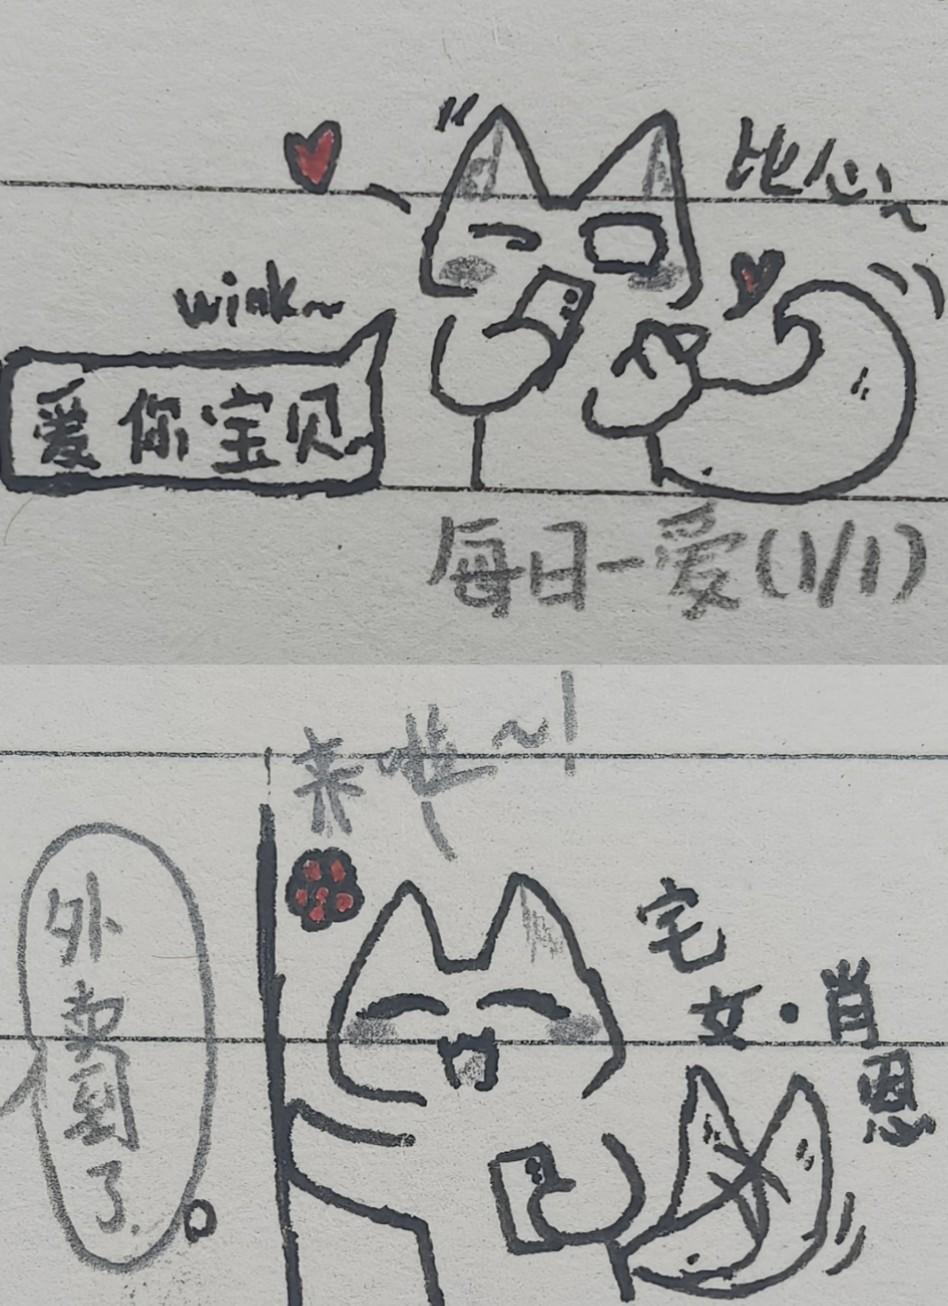 比心~
wink~
爱你宝贝
每日一爱(1/1)
来啦~!
外卖到了
宅女·肖恩